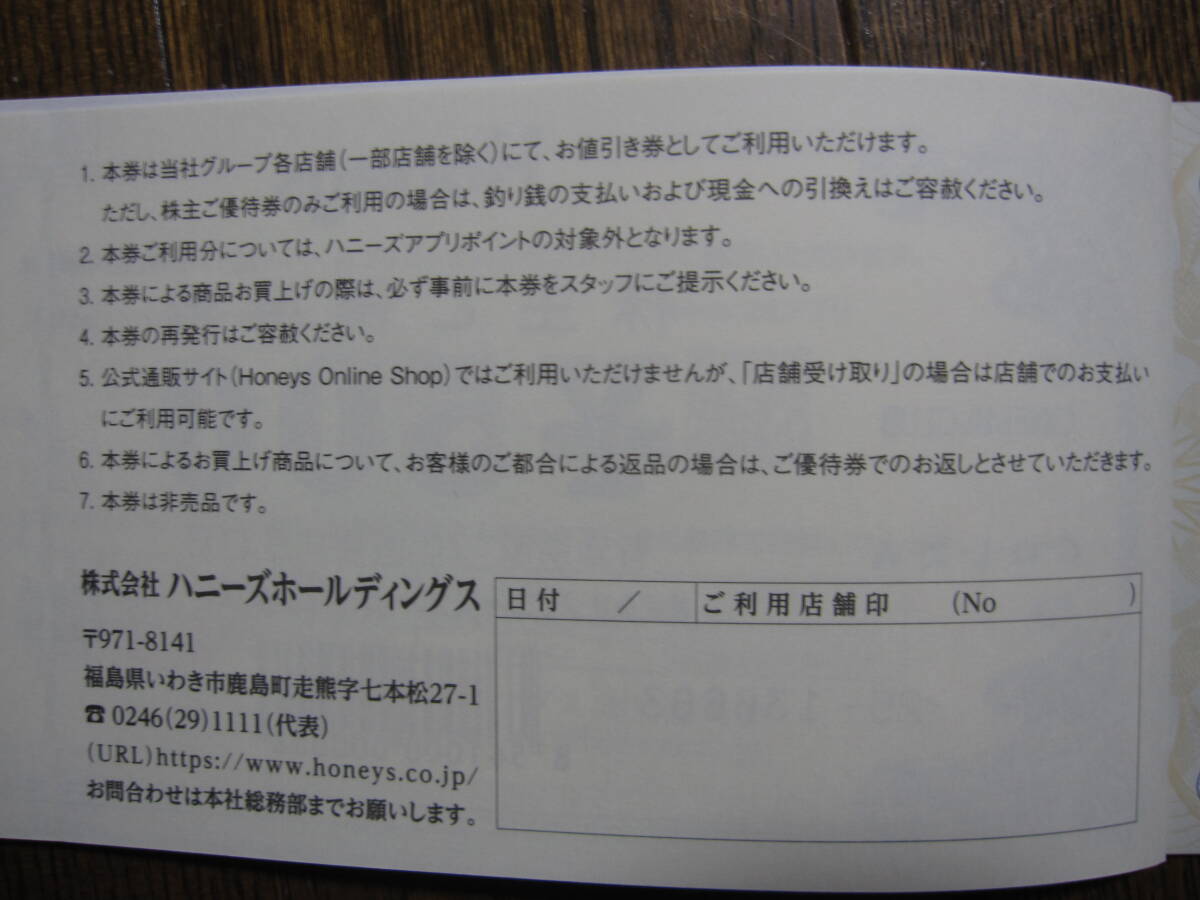 1. 本券は当社グループ各店舗(一部店舗を除く)にて、お値引き券としてご利用いただけます。
ただし、株主ご優待券のみご利用の場合は、釣り銭の支払いおよび現金への引換えはご容赦ください。
2. 本券ご利用分については、ハニーズアプリポイントの対象外となります。
3. 本券による商品お買上げの際は、必ず事前に本券をスタッフにご提示ください。
4. 本券の再発行はご容赦ください。
5. 公式通販サイト(Honeys Online Shop)ではご利用いただけませんが、「店舗受け取り」の場合は店舗でのお支払い
にご利用可能です。
6. 本券によるお買上げ商品について、お客様のご都合による返品の場合は、ご優待券でのお返しとさせていただきます。
7. 本券は非売品です。
株式会社 ハニーズホールディングス
〒971-8141
福島県いわき市鹿島町走熊字七本松27-1
☎ 0246(29)1111(代表)
(URL)https://www.honeys.co.jp/
お問合わせは本社総務部までお願いします。
日付 / ご利用店舗印 (No )